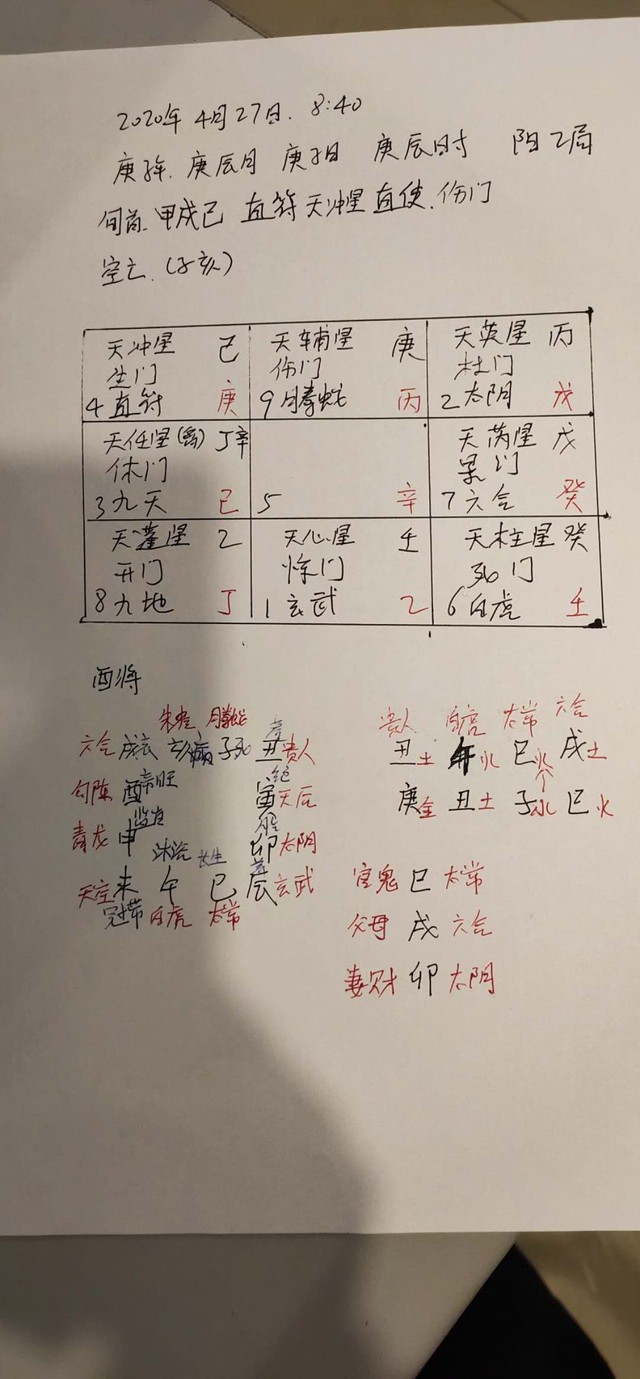 2020年 4月27日. 8:40
庚子年. 庚辰月 庚子日 庚辰时 阳2局
旬首. 甲戌己 直符天冲星 直使. 伤门
空亡. (子亥)
天冲星 己
生门
4 直符 庚
天辅星 庚
伤门
9 螣蛇 丙
天英星 丙
杜门
2 太阴 戊
天任星(禽) 丁辛
休门
3 九天 己
5 辛
天芮星 戊
景门
7 六合 癸
天蓬星 乙
开门
8 九地 丁
天心星 壬
惊门
1 玄武 乙
天柱星 癸
死门
6 白虎 壬
酉将
朱雀 螣蛇
六合 戌衰 亥病 子死 丑 贵人
勾陈 酉 帝旺 寅 绝 天后
青龙 申 卯 胎 太阴
沐浴 长生
天空 未 午 巳 辰 养 玄武
冠带 白虎 太常
贵人 白虎 太常 六合
丑土 午火 巳火 戌土
庚金 丑土 子水 巳火
官鬼 巳 太常
父母 戌 六合
妻财 卯 太阴